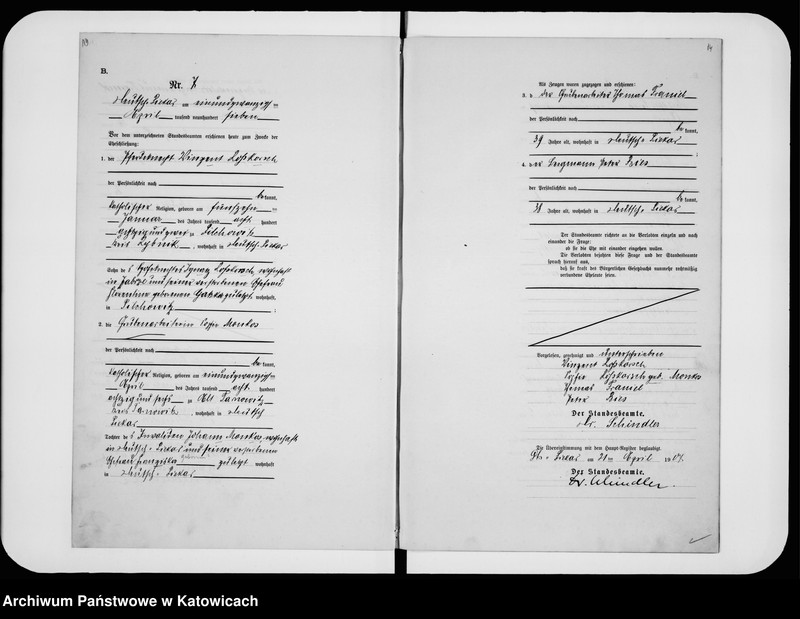 B.
Nr. 7
Deutsch Piekar am einundzwanzigsten
April tausend neunhundert sieben
Vor dem unterzeichneten Standesbeamten erschienen heute zum Zwecke der
Eheschließung:
1. der Vinzent
der Persönlichkeit nach
be kannt,
katholischer Religion, geboren am fünfzehnten
Januar des Jahres tausend acht hundert
achtzig und zu Pilchowitz
Kreis Rybnik, wohnhaft in Deutsch Piekar
Sohn des Ignaz wohnhaft
in Zabrze und seiner verstorbenen Ehefrau
geborenen zuletzt wohnhaft,
in Pilchowitz ;
2. die Sofie Monkos
der Persönlichkeit nach
be kannt,
katholischer Religion, geboren am einundzwanzigsten
April des Jahres tausend acht hundert
achtzig und sechs zu Alt Tarnowitz
Kreis Tarnowitz, wohnhaft in Deutsch
Piekar
Tochter des Invaliden Johann Monkos, wohnhaft
in Deutsch Piekar und seiner verstorbenen
Ehefrau Franziska zuletzt wohnhaft
in Deutsch Piekar
14
Als Zeugen waren zugezogen und erschienen:
3. der Thomas
der Persönlichkeit nach
be kannt,
39 Jahre alt, wohnhaft in Deutsch Piekar
;
4. der Bergmann Peter Bies
der Persönlichkeit nach
be kannt,
38 Jahre alt, wohnhaft in Deutsch Piekar
Der Standesbeamte richtete an die Verlobten einzeln und nach
einander die Frage:
ob sie die Ehe mit einander eingehen wollen.
Die Verlobten bejahten diese Frage und der Standesbeamte
sprach hierauf aus,
daß sie kraft des Bürgerlichen Gesetzbuchs nunmehr rechtmäßig
verbundene Eheleute seien.
Vorgelesen, genehmigt und unterschrieben
Vinzent
Sofie geb. Monkos
Thomas
Peter Bies
Der Standesbeamte.
Dr. Schindler
Die Übereinstimmung mit dem Haupt-Register beglaubigt.
Dt. Piekar am 21ten April 1907.
Der Standesbeamte.
Dr. Schindler.
Archiwum Państwowe w Katowicach